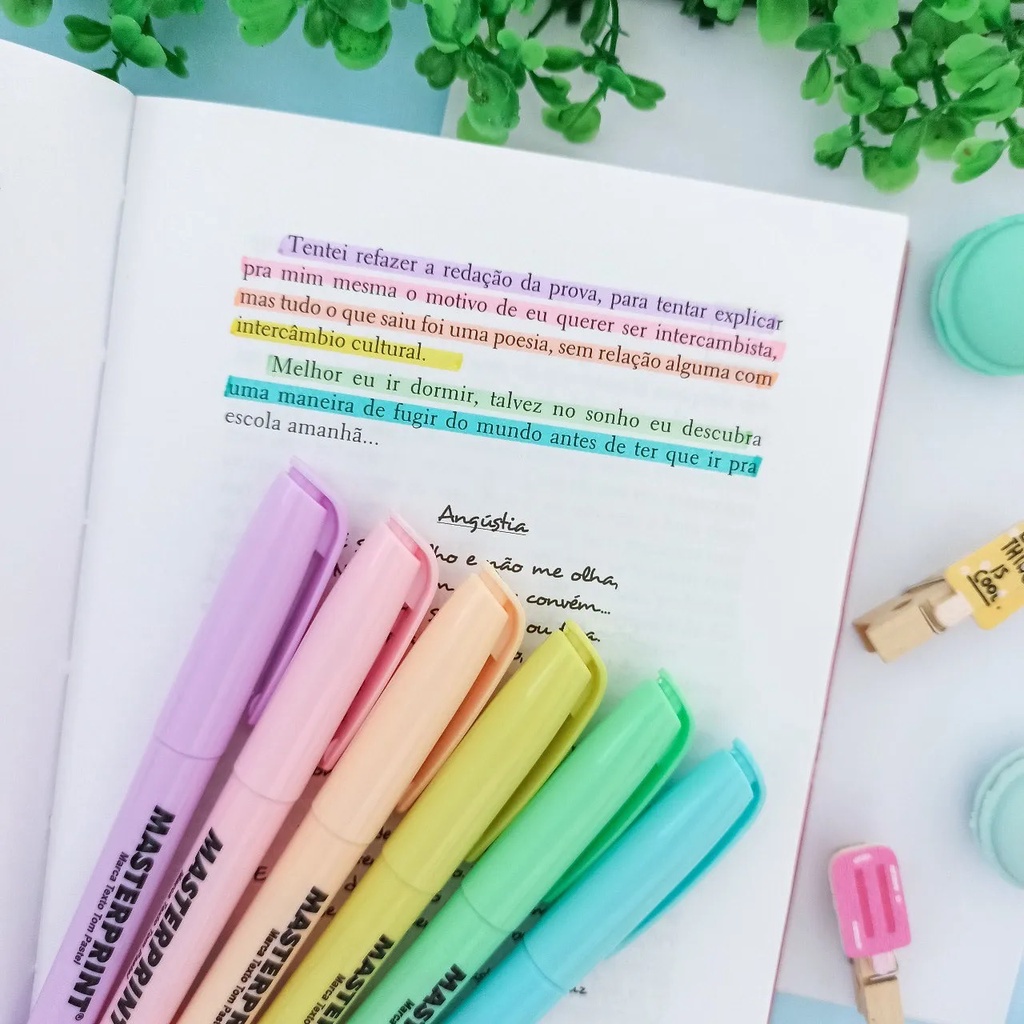 Tentei refazer a redação da prova, para tentar explicar
pra mim mesma o motivo de eu querer ser intercambista,
mas tudo o que saiu foi uma poesia, sem relação alguma com
intercâmbio cultural.
Melhor eu ir dormir, talvez no sonho eu descubra
uma maneira de fugir do mundo antes de ter que ir pra
escola amanhã...
Angústia
e não me olha,
convém...
ou
IS
COOL
MASTERPRINT
Marca Texto Tom Pastel
MASTERPRINT
MASTERPR
Marca Texto Tom Pastel
MAST
Marca Texto
MAS
Marca